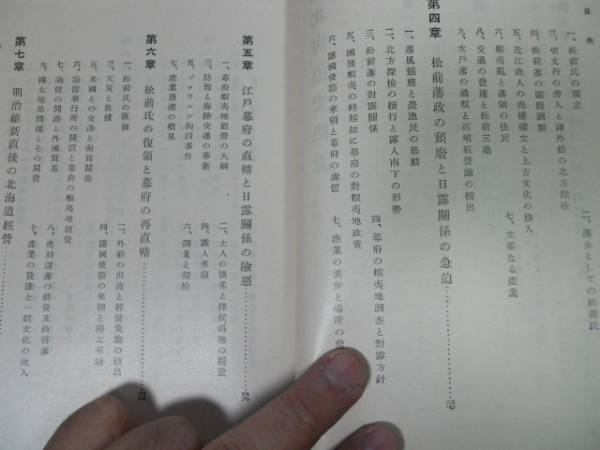 目次
一、松前氏の獨立
二、藩末としての松前氏
三、切支丹の潜入と課外船の北方探檢
四、松前藩の職制
五、近江商人の商權確立と上方文化の移入
六、蝦夷亂と藩領の住民
七、主要なる産業
八、交通の發達と松前三港
九、水戸藩の進航と拓殖經營論の續出
第四章 松前藩政の頽廢と日露關係の急迫
一、藩風頽廢と農漁民の暴動
二、北方探檢の續行と露人南下の形勢
三、松前藩の對露關係
四、幕府の蝦夷地調査と對露方針
五、國後蝦夷の終起錠に幕府の對蝦夷地政策
六、露國使節の來朝と幕府の處置
七、漁業の進步と場所の
第五章 江戸幕府の直轄と日露關係の險惡
一、幕府蝦夷地經營の大綱
二、土人の懷柔と擇捉得撫の開發
三、防備と海陸交通の革新
四、露人來寇
五、ゴロウニン拘囚事件
六、測量と探檢
七、産業發達の概見
第六章 松前氏の復領と幕府の再直轄
一、松前氏の復領
二、外船の出沒と經營策論の續出
三、天災と飢饉
四、露國使節の來朝と樺太來寇
五、米國との交渉と箱館開港
六、箱館奉行所の開設と幕府の蝦夷地經營
七、箱館の開港と外國貿易
八、奥羽諸藩の經營及松前藩
九、樺太境界問題とその開發
七、産業の發達と一般文化の流入
第七章 明治維新直後の北海道經營